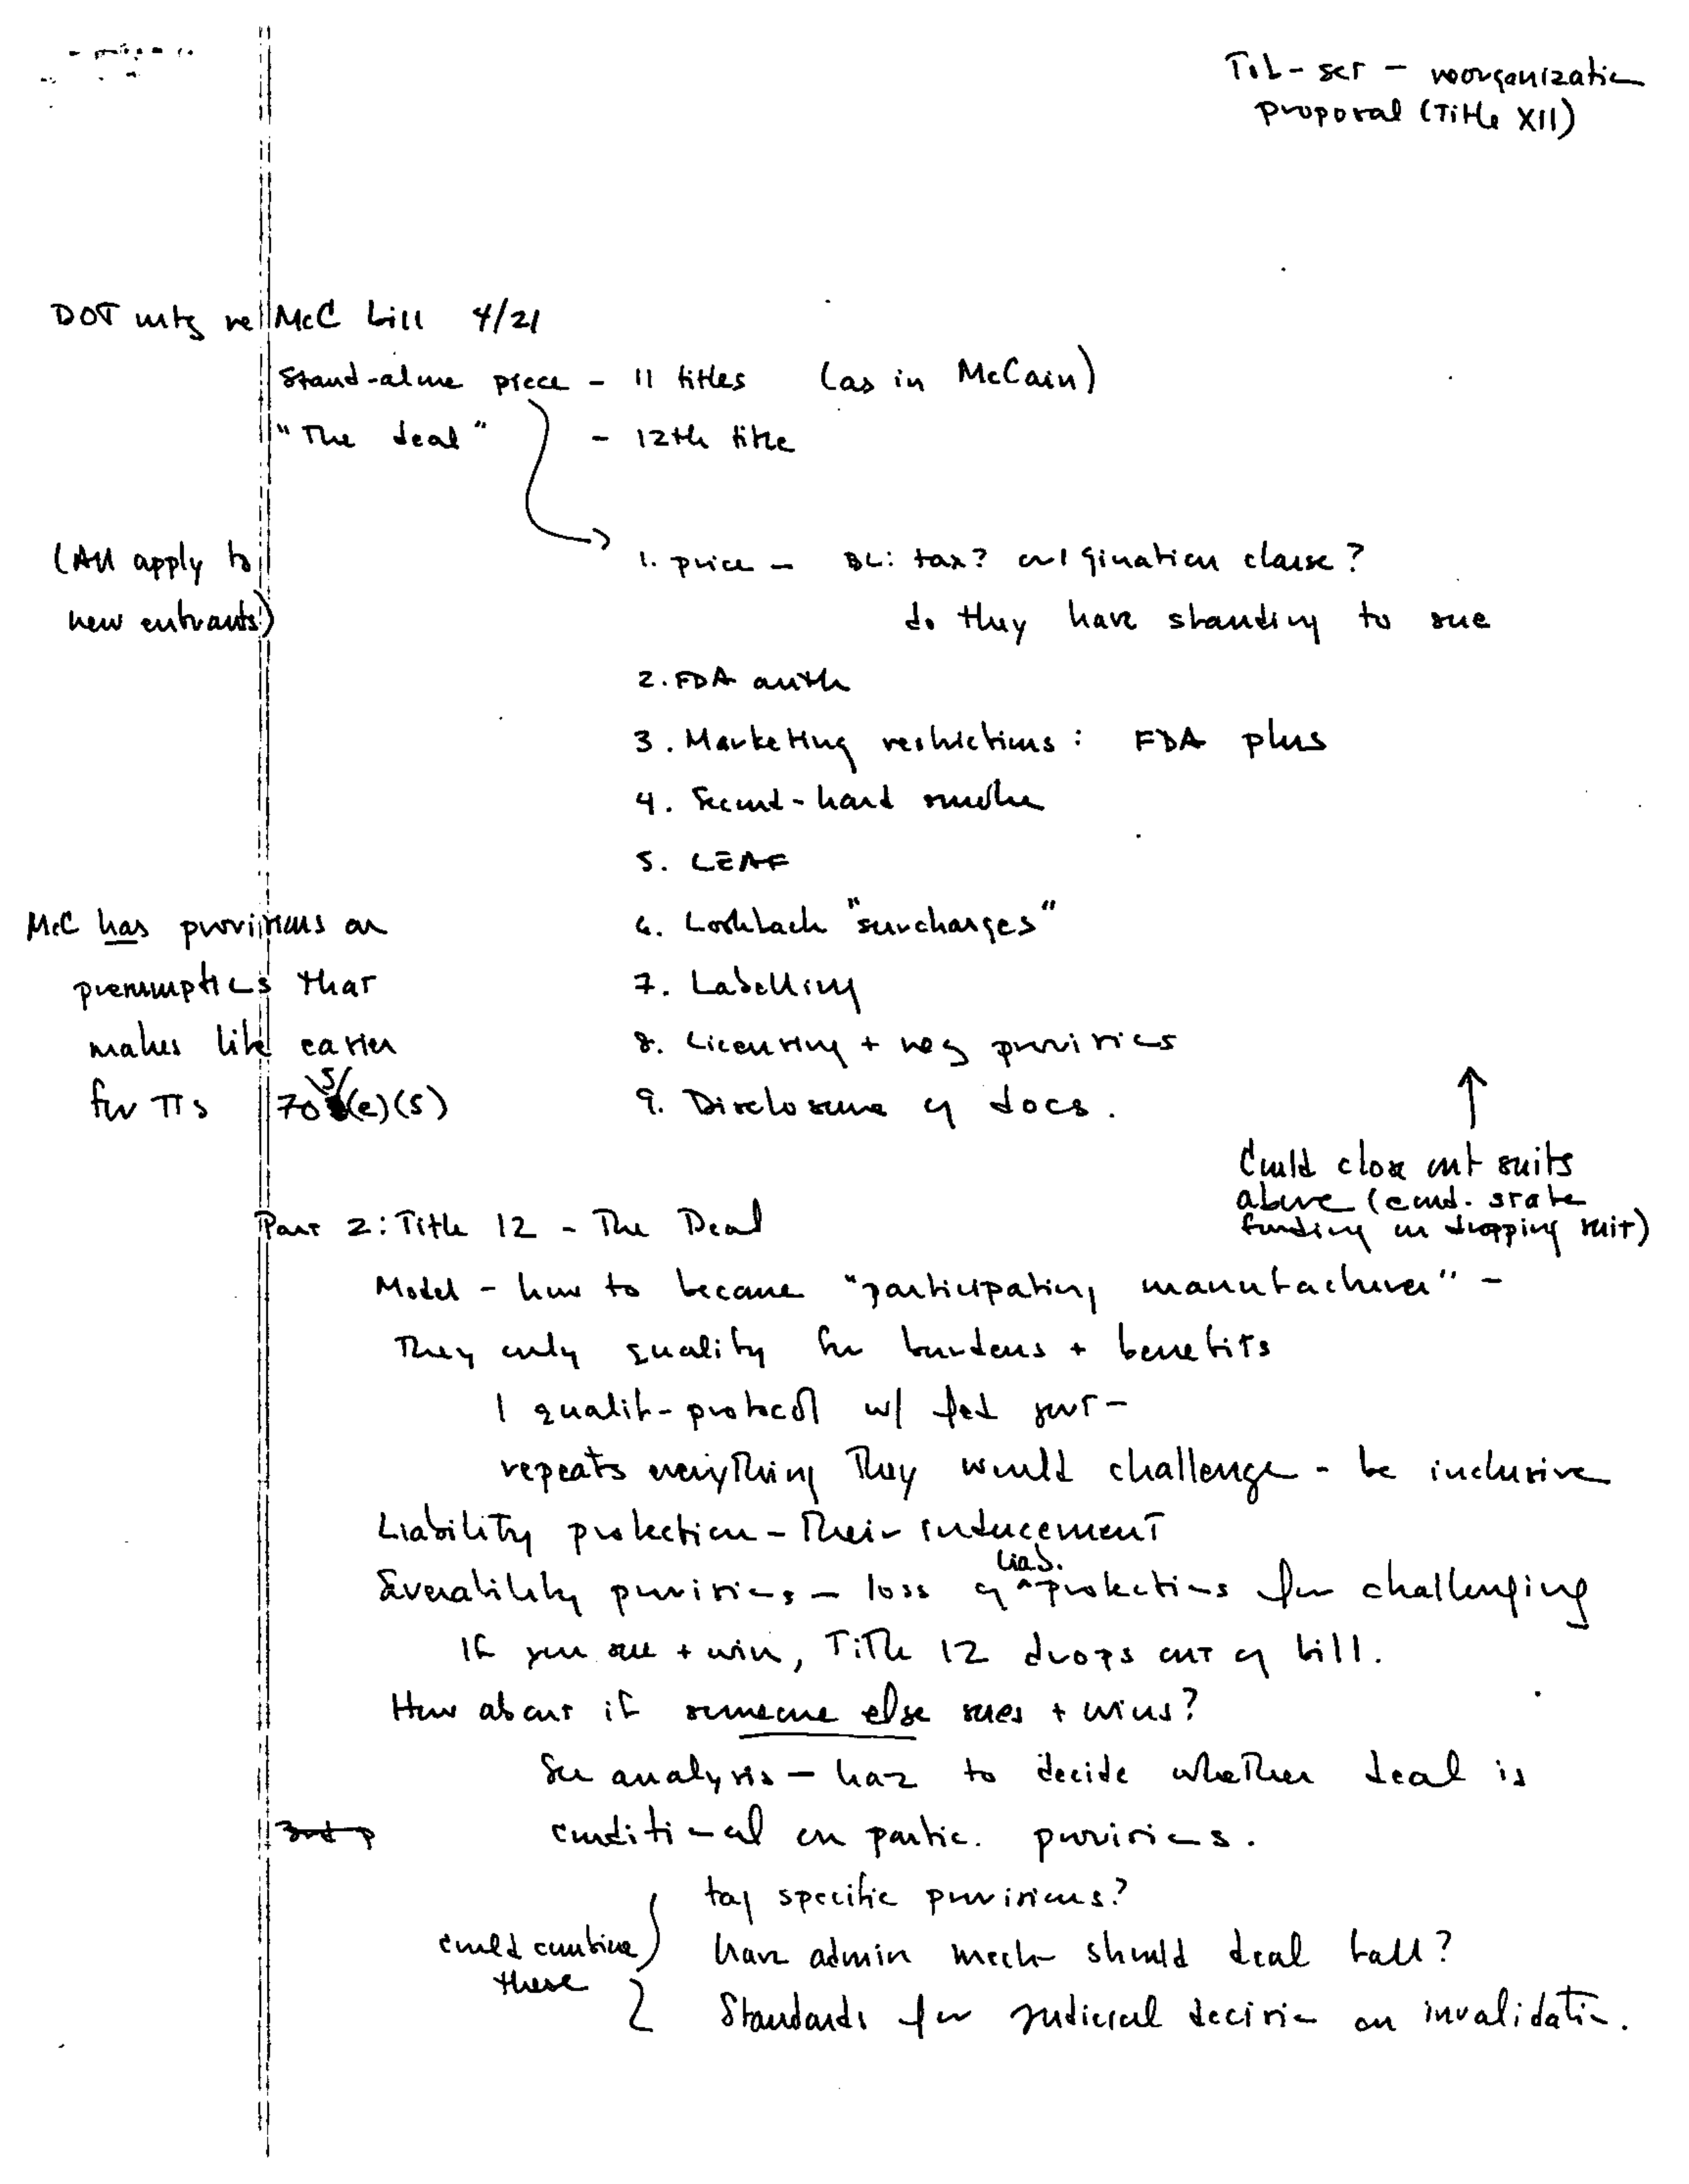 Tob-set - reorganization
proposal (Title XII)
DOT mtg re McC bill 4/21
Stand-alone piece - 11 titles (as in McCain)
"The deal" - 12th title
(All apply to
new entrants)
1. price - BL: tax? origination clause?
do they have standing to sue
2. FDA auth
3. Marketing restrictions: FDA plus
4. Second-hand smoke
5. LEAF
6. Lookback "surcharges"
7. Labelling
8. Licensing + reg provisions
9. Disclosure of docs.
McC has provisions on
presumptions that
makes life easier
for πs 705(e)(5)
Could close out suits
above (cond. state
funding on dropping suit)
Part 2: Title 12 - The Deal
Model - how to become "participating manufacturer" -
They only qualify for burdens + benefits
1 qualif - protocol w/ fed govt -
repeats everything they would challenge - be inclusive
Liability protection - Their inducement
Severability provisions - loss of ^liab. protections for challenging
If you sue + win, Title 12 drops out of bill.
How about if someone else sues + wins?
Sev analysis - have to decide whether deal is
3rd p
conditional on partic. provisions.
tag specific provisions?
could combine
these
have admin mech - should deal fall?
Standards for judicial decision on invalidation.